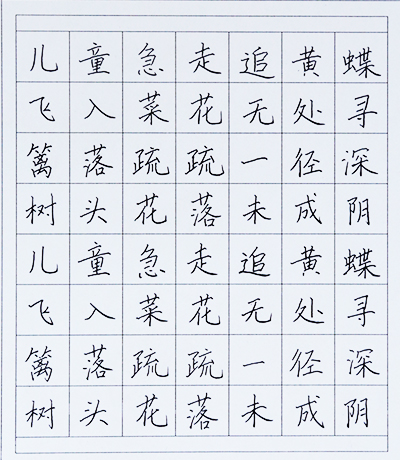 儿童急走追黄蝶
飞入菜花无处寻
篱落疏疏一径深
树头花落未成阴
儿童急走追黄蝶
飞入菜花无处寻
篱落疏疏一径深
树头花落未成阴